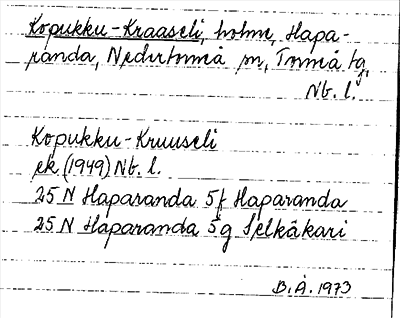 Kopukku-Kraaseli, holme, Hapa-
randa, Nedertorneå sn, Torneå tg,
Nb. l.
Kopukku-Kruuseli
ek (1949) Nb. l.
25 N Haparanda 5f Haparanda
25 N Haparanda 5g Selkäkari
B.Å. 1973